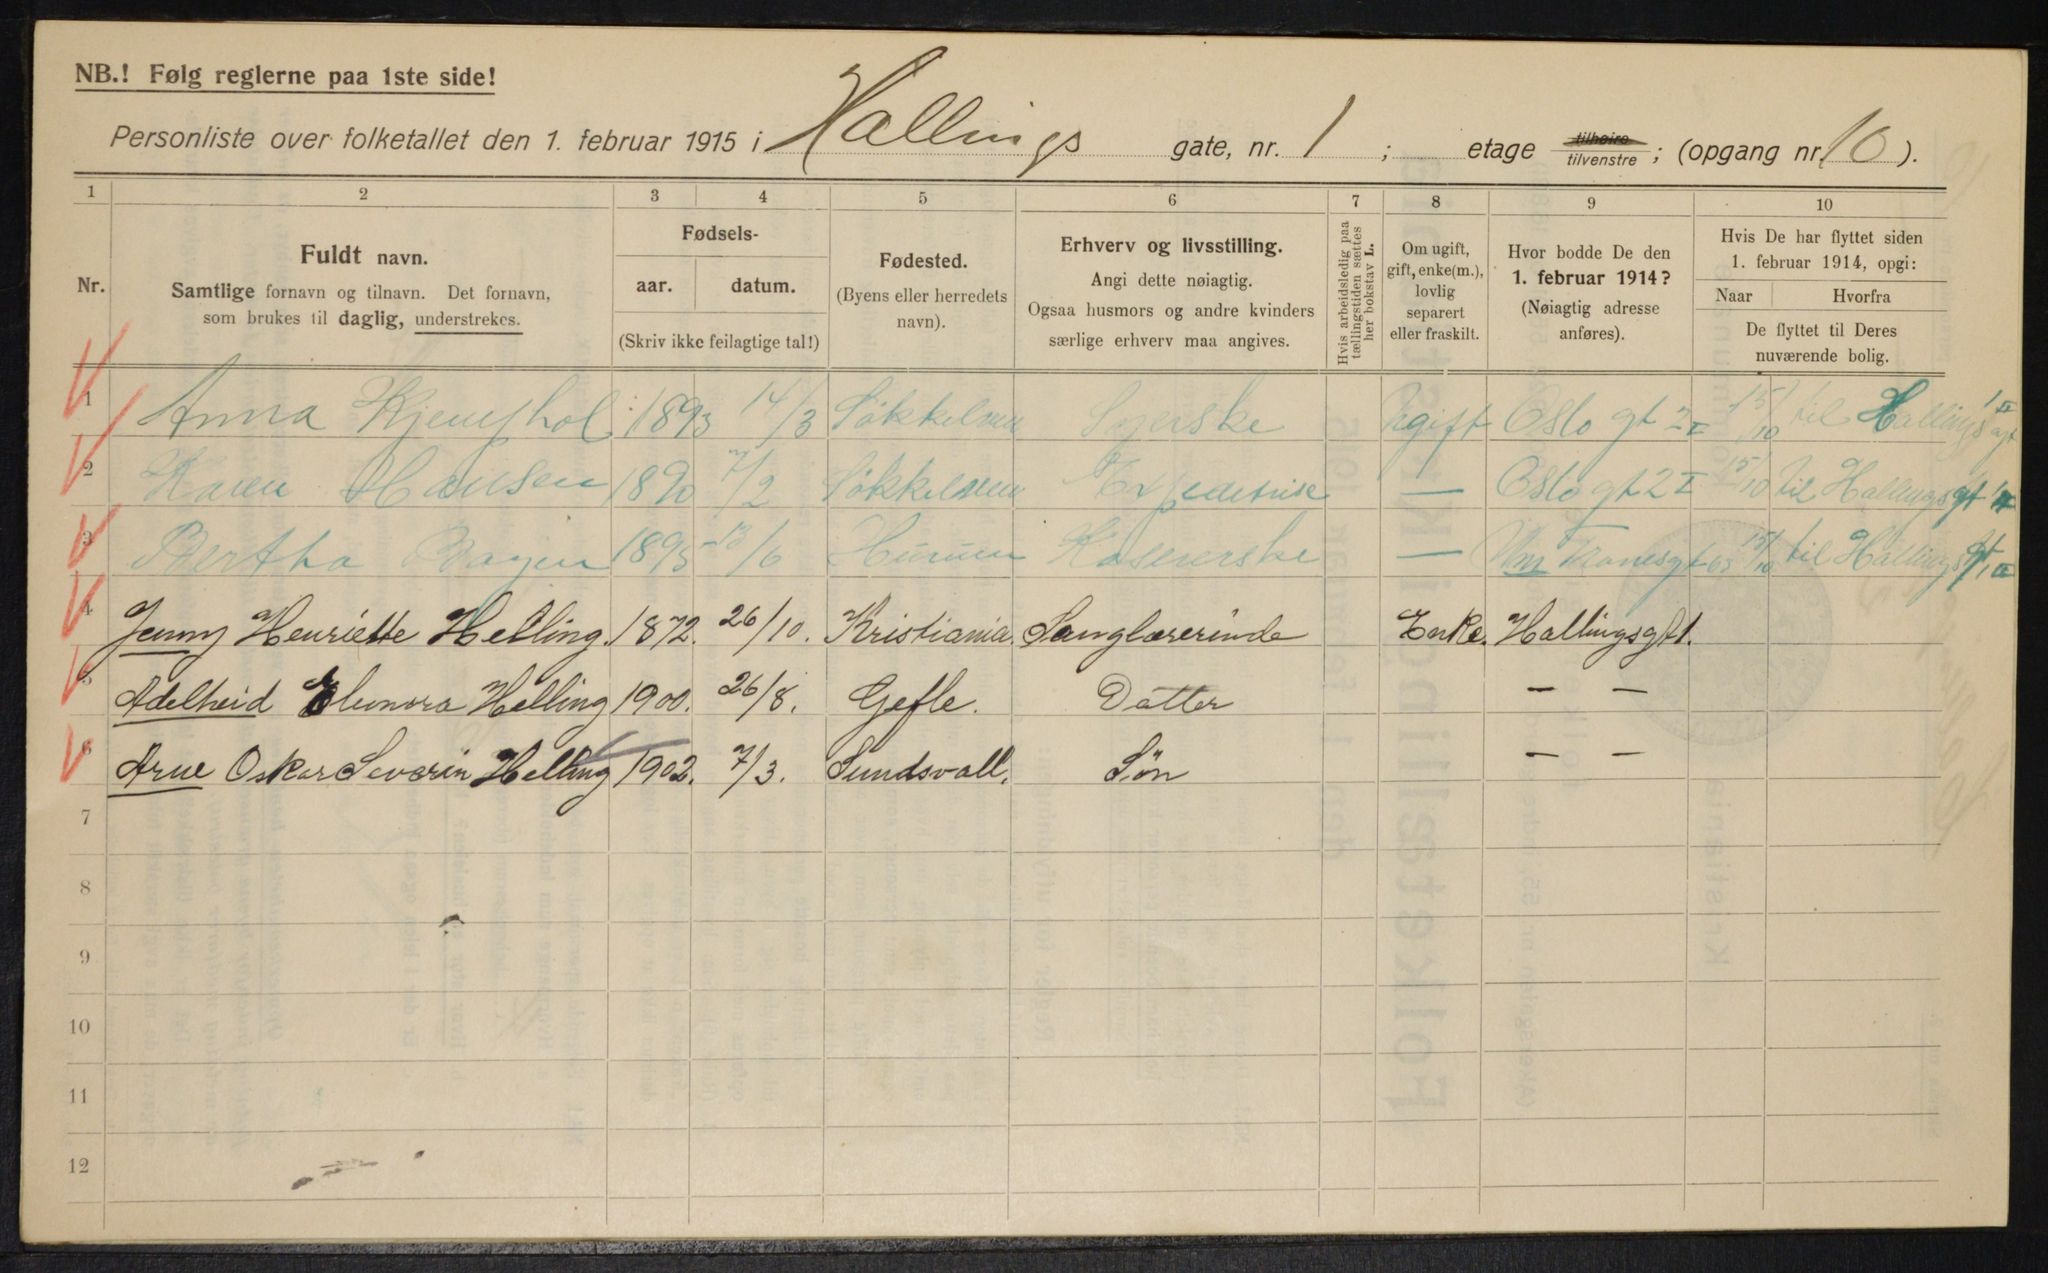 NB.! Følg reglerne paa 1ste side!
Personliste over folketallet den 1. februar 1915 i Hallings gate, nr. 1 ; etage tilhøire tilvenstre ; (opgang nr. 10 ).
1 2 3 4 5 6 7 8 9 10
Nr.
Fuldt navn.
Samtlige fornavn og tilnavn. Det fornavn,
som brukes til daglig, understrekes.
Fødsels-
aar. datum.
(Skriv ikke feilagtige tal!)
Fødested.
(Byens eller herredets
navn).
Erhverv og livsstilling.
Angi dette nøiagtig.
Ogsaa husmors og andre kvinders
særlige erhverv maa angives.
Hvis arbeidsledig paa
tællingstiden sættes
her bokstav L.
Om ugift,
gift, enke(m.),
lovlig
separert
eller fraskilt.
Hvor bodde De den
1. februar 1914?
(Nøiagtig adresse
anføres).
Hvis De har flyttet siden
1. februar 1914, opgi:
Naar Hvorfra
De flyttet til Deres
nuværende bolig.
1 Anna 1893 14/3 Syerske Ugift Oslo gt 2 I 15/10 til Hallings gt 1 II
2 Karen Hansen 1890 7/2 — Oslo gt 2 I 15/10 til Hallings gt 1 II
3 Bertha 1895 13/6 Hurum Kasererske — 15/10 til Hallings gt 1 II
4 Jenny Henriette Helling. 1872. 26/10. Kristiania. Sanglærerinde Enke. Hallingsgt 1.
5 Adelheid Elenora Helling 1900. 26/8. Gefle. Datter — —
6 Arne Oskar Severin Helling 1902. 7/3. Sundsvall. Søn — —
7
8
9
10
11
12